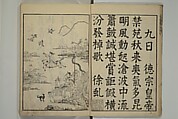 九日 德宗皇帝
禁苑秋来爽氣多昆
明風動起滄波中流
簫鼓誠堪賞詎假橫
汾發棹歌 徐